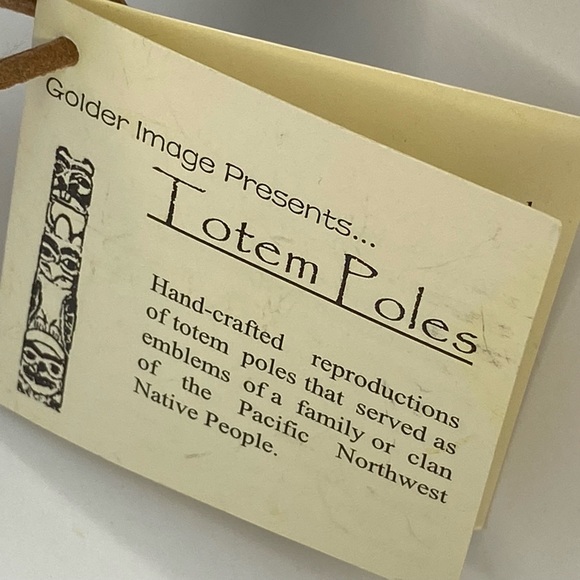 Golder Image Presents...
Totem Poles
Hand-crafted reproductions
of totem poles that served as
emblems of a family or clan
of the Pacific Northwest
Native People.